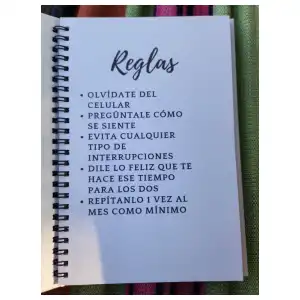 Reglas
• OLVÍDATE DEL
CELULAR
• PREGÚNTALE CÓMO
SE SIENTE
• EVITA CUALQUIER
TIPO DE
INTERRUPCIONES
• DILE LO FELIZ QUE TE
HACE ESE TIEMPO
PARA LOS DOS
• REPÍTANLO 1 VEZ AL
MES COMO MÍNIMO